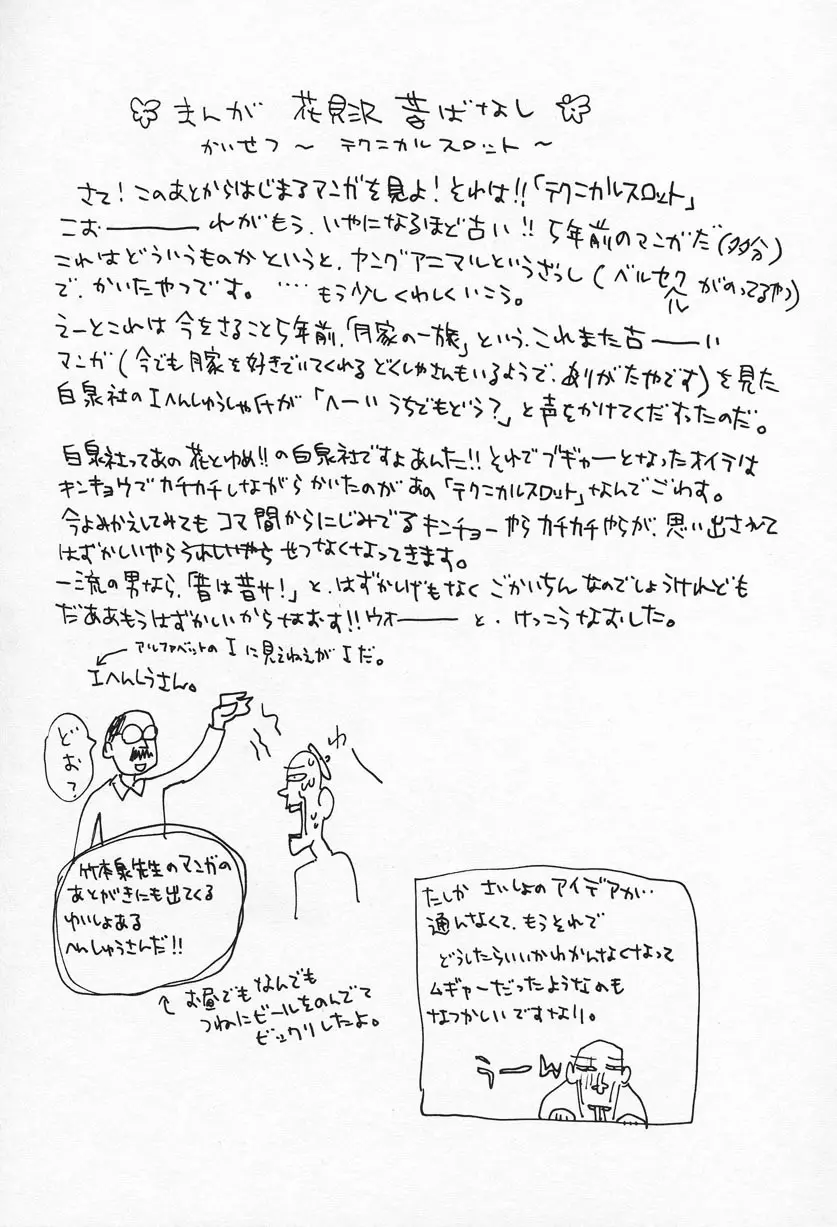 まんが 花見沢 昔ばなし
かいせつ〜 テクニカルスロット 〜
さて！このあとからはじまるマンガを見よ！それは!!「テクニカルスロット」
こおーーーれがもう、いやになるほど古い!! 5年前のマンガだ(多分)
これはどういうものかというと、ヤングアニマルというざっし(ベルセルクがのってるやつ)
で、かいたやつです。‥‥もう少しくわしくいこう。
えーとこれは今をさること5年前、「月家の一族」という、これまた古ーーい
マンガ(今でも月家を好きでいてくれるどくしゃさんもいるようで、ありがたやです)を見た
白泉社のIへんしゅうしゃ氏が「へーいうちでもどう？」と声をかけてくださったのだ。
白泉社ってあの花とゆめ!!の白泉社ですよあんた!!それでブギャーとなったオイラは
キンキョウでカチカチしながらかいたのがあの「テクニカルスロット」なんでごわす。
今よみかえしてみてもコマ間からにじみでるキンチョーやらカチカチやらが、思い出されて
はずかしいやらうれしいやらせつなくなってきます。
一流の男なら、「昔は昔サ！」と、はずかしげもなくごかいちんなのでしょうけれども
だああもうはずかしいからなおす!!ウオーーーと、けっこうなおした。
アルファベットのIに見えねえがIだ。
Iへんしうさん。
どお？
わ
竹本泉先生のマンガの
あとがきにも出てくる
ゆいしょある
へんしゅうさんだ!!
お昼でもなんでも
つねにビールをのんでて
ビックリしたよ。
たしか さいしょのアイデアが‥
通んなくて、もうそれで
どうしたらいいかわかんなくなって
ムギャーだったようなのも
なつかしいですなり。
うーん